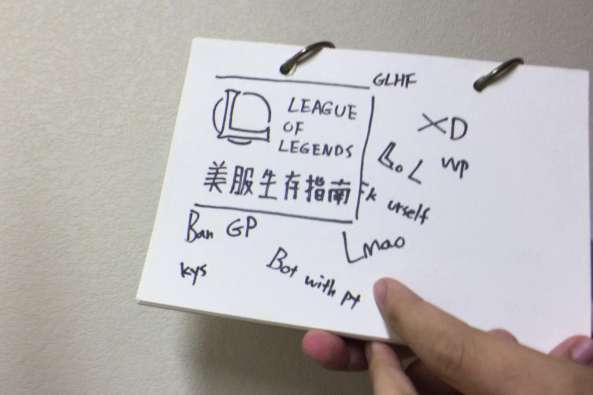 GLHF
LEAGUE
OF
LEGENDS
美服生存指南
XD
BoL
WP
Fk urself
Lmao
Ban GP
kys
Bot with pt